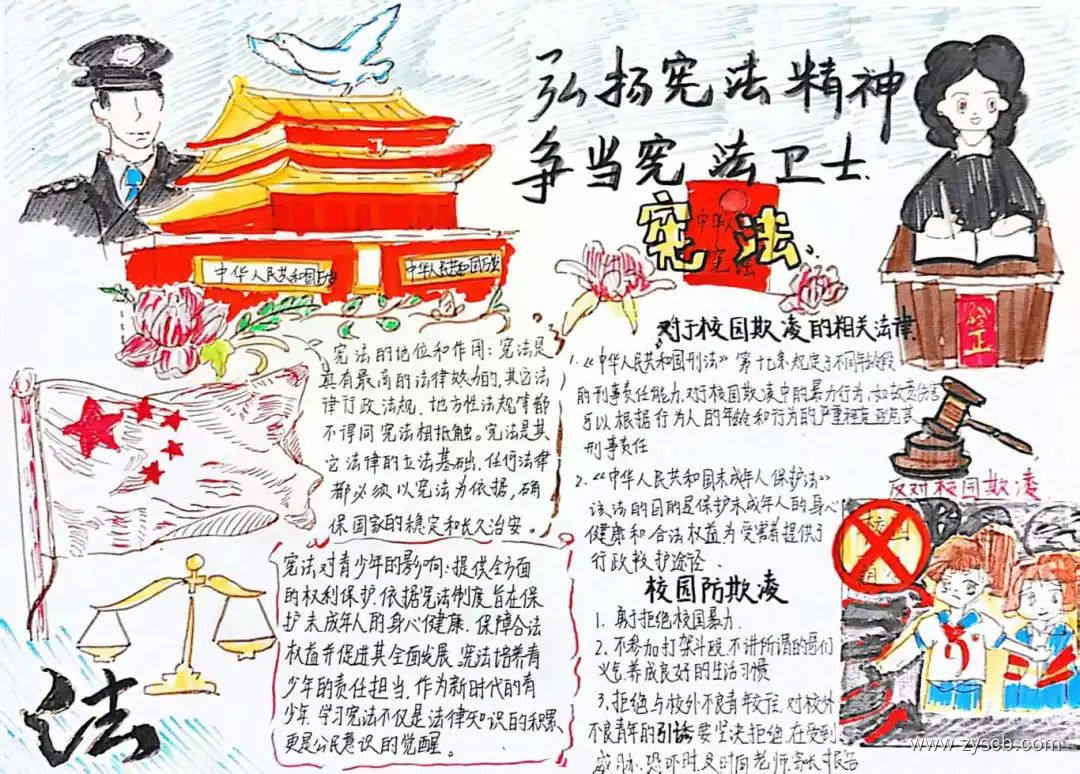 弘扬宪法精神
争当宪法卫士
宪法
中华人民共和国万岁
中华人民共和国万岁
宪法的地位和作用:宪法是
具有最高的法律效力的,其它法
律行政法规、地方性法规等都
不得同宪法相抵触。宪法是其
它法律的立法基础,任何法律
都必须以宪法为依据,确
保国家的稳定和长久治安。
宪法对青少年的影响:提供全方面
的权利保护,依据宪法制度旨在保
护未成年人的身心健康,保障合法
权益并促进其全面发展。宪法培养青
少年的责任担当,作为新时代的青
少年,学习宪法不仅是法律知识的积累,
更是公民意识的觉醒。
法
对于校园欺凌的相关法律
1.《中华人民共和国刑法》第十七条规定了不同年龄段
的刑事责任能力,对校园欺凌中的暴力行为,如故意伤害
可以根据行为人的年龄和行为的严重程度追究其
刑事责任
2.《中华人民共和国未成年人保护法》
该法的目的是保护未成年人的身心
健康和合法权益为受害者提供了
行政救护途径
校园防欺凌
1.勇于拒绝校园暴力.
2.不参加打架斗殴,不讲所谓的哥们
义气,养成良好的生活习惯
3.拒绝与校外不良青年交往,对校外
不良青年的引诱要坚决拒绝,在受到
威胁、恐吓时,及时向老师、家长报告
反对校园欺凌
www.zyscb.com